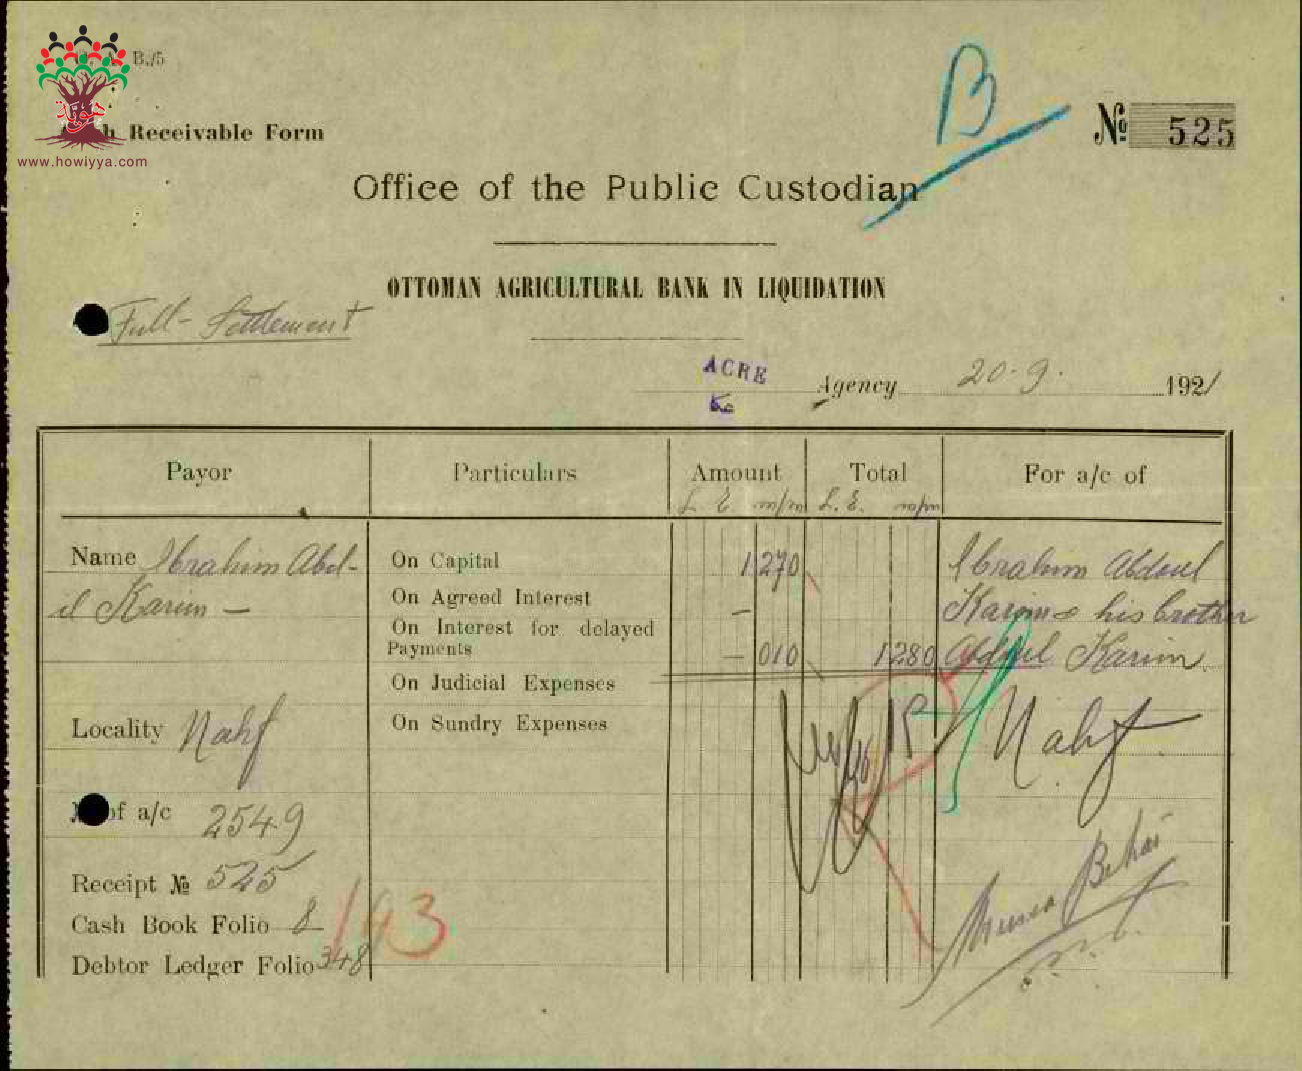 B./5
Receivable Form
www.howiyya.com
B
№ 525
Office of the Public Custodian
OTTOMAN AGRICULTURAL BANK IN LIQUIDATION
Full-Settlement
ACRE Agency 20.9. 1921
Payor Particulars Amount Total For a/c of
L E m/m L. E. m/m
Name Ibrahim Abd- On Capital 1270 Ibrahim Abdoul
el Karim - On Agreed Interest - Karim & his brother
On Interest for delayed
Payments - 010 1280 Abdoul Karim
On Judicial Expenses
Locality Nahf On Sundry Expenses Nahf
of a/c 2549
Receipt № 525
Cash Book Folio 8 193
Debtor Ledger Folio 348